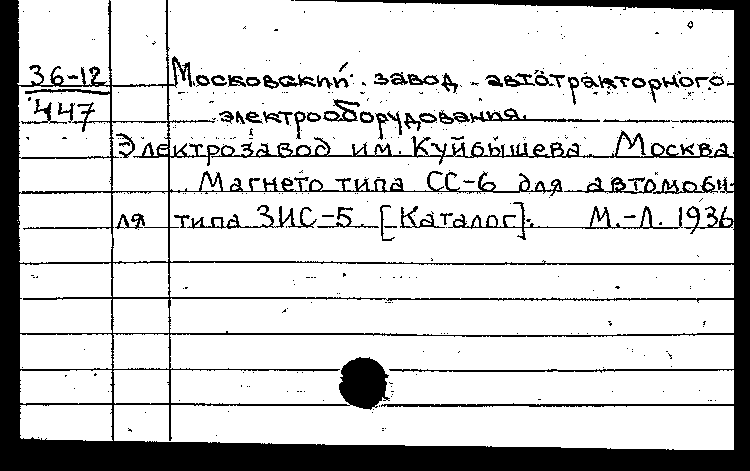 36-12 Московский завод автотракторного
447 электрооборудования.
Электрозавод им. Куйбышева. Москва
Магнето типа СС-6 для автомоби-
ля типа ЗИС-5. [Каталог]. М.-Л. 1936